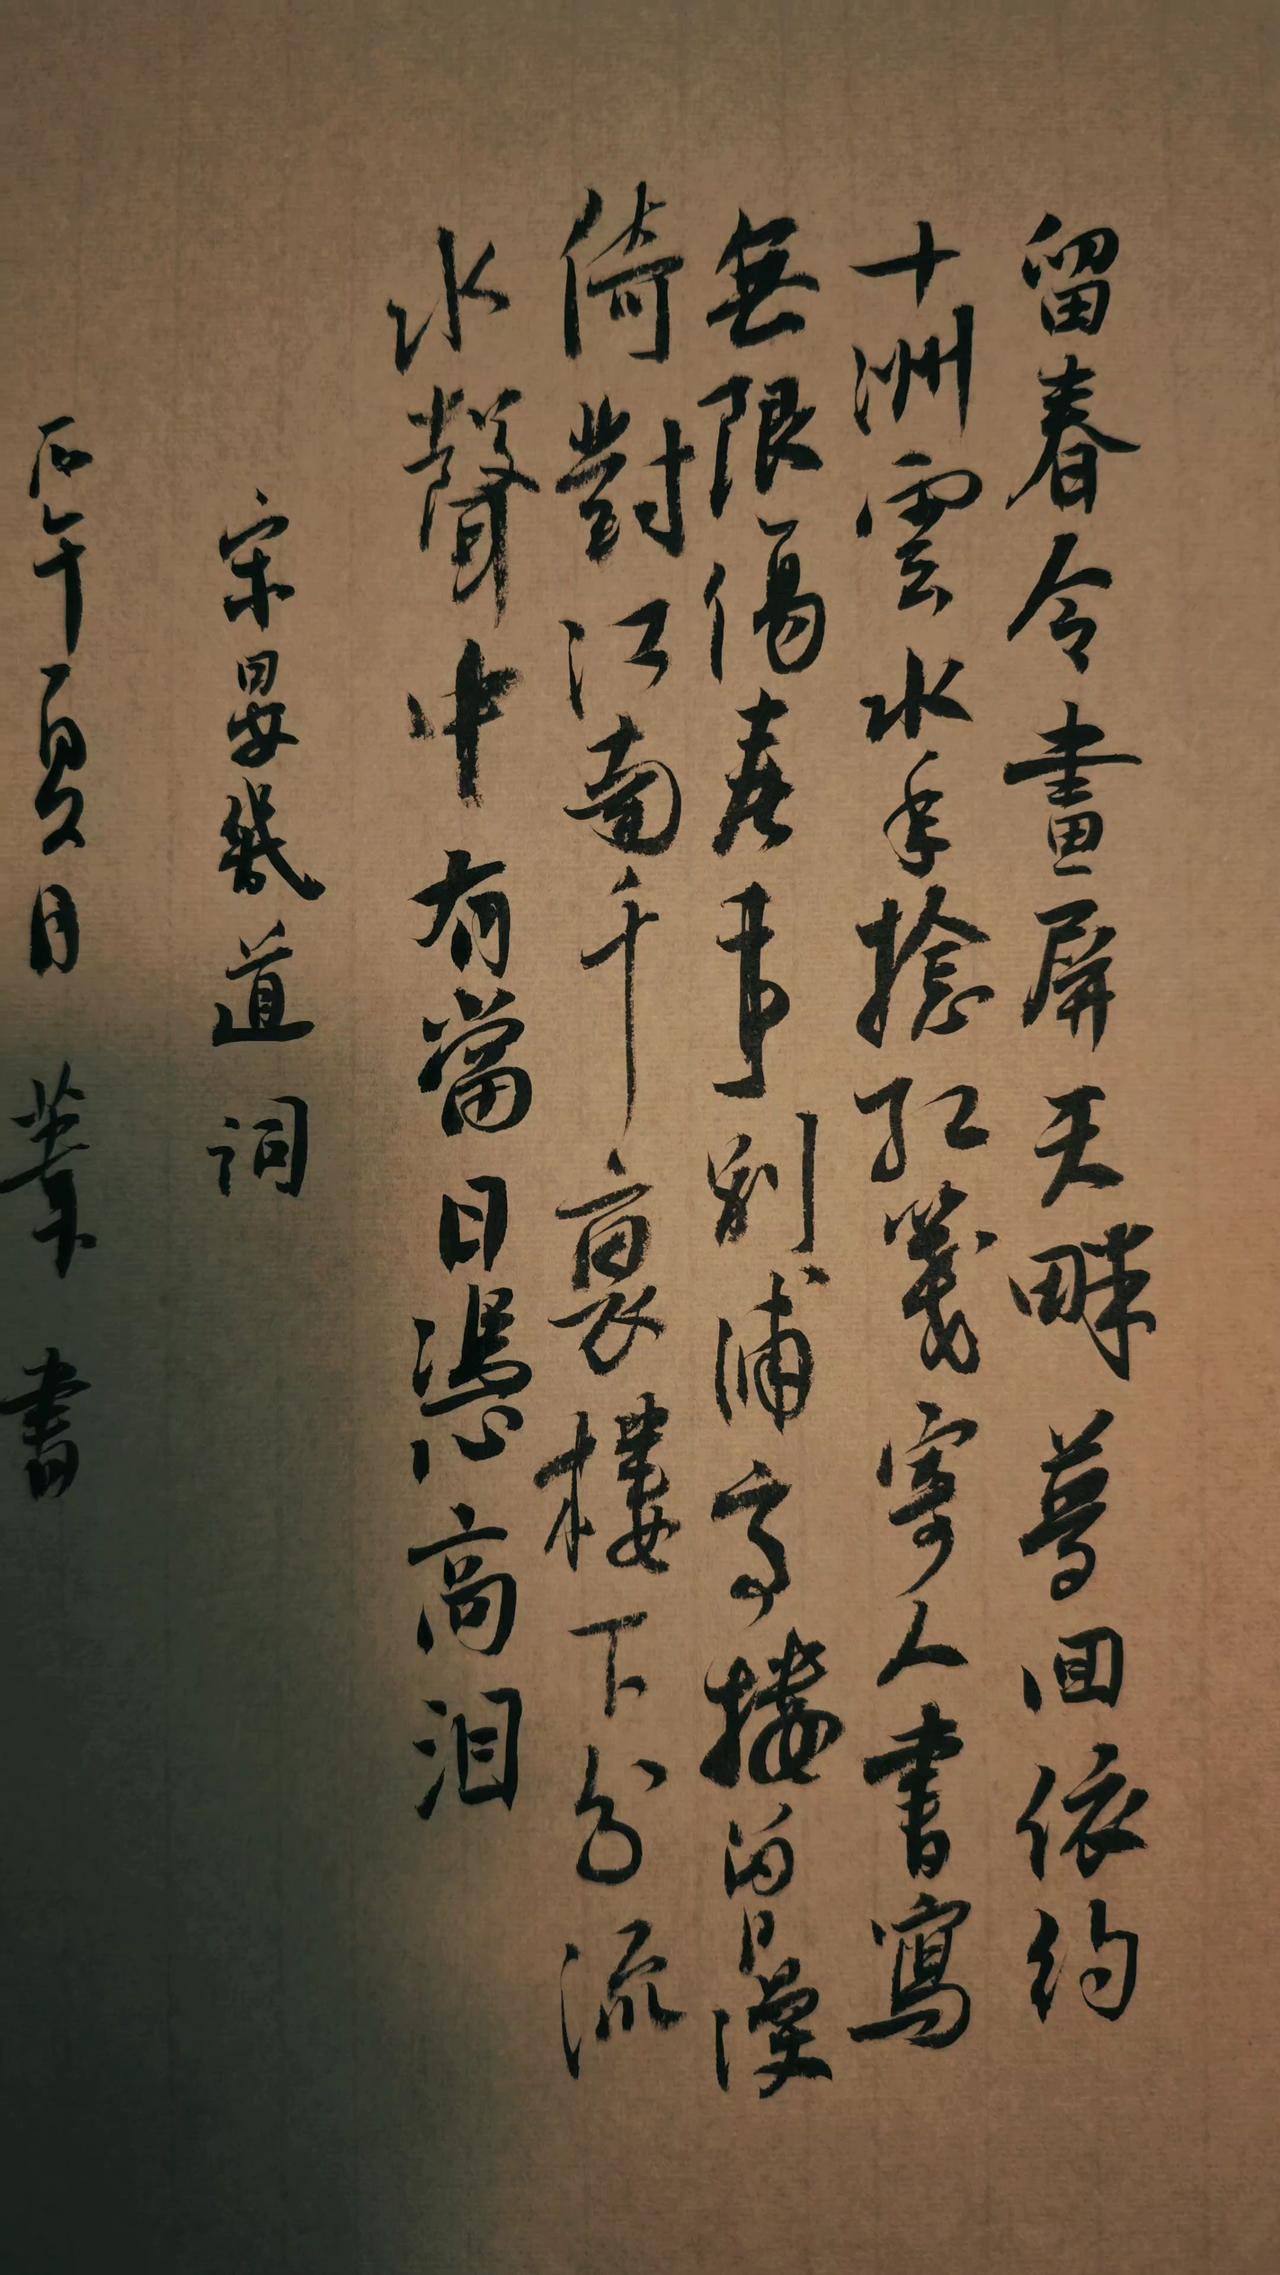 留春令畫屏天畔夢回依約
十洲雲水手捻紅箋寄人書寫
無限傷春事別浦高樓曾漫
倚對江南千里樓下分流
水聲中有當日憑高淚
宋晏幾道詞
丙午夏月 筆書